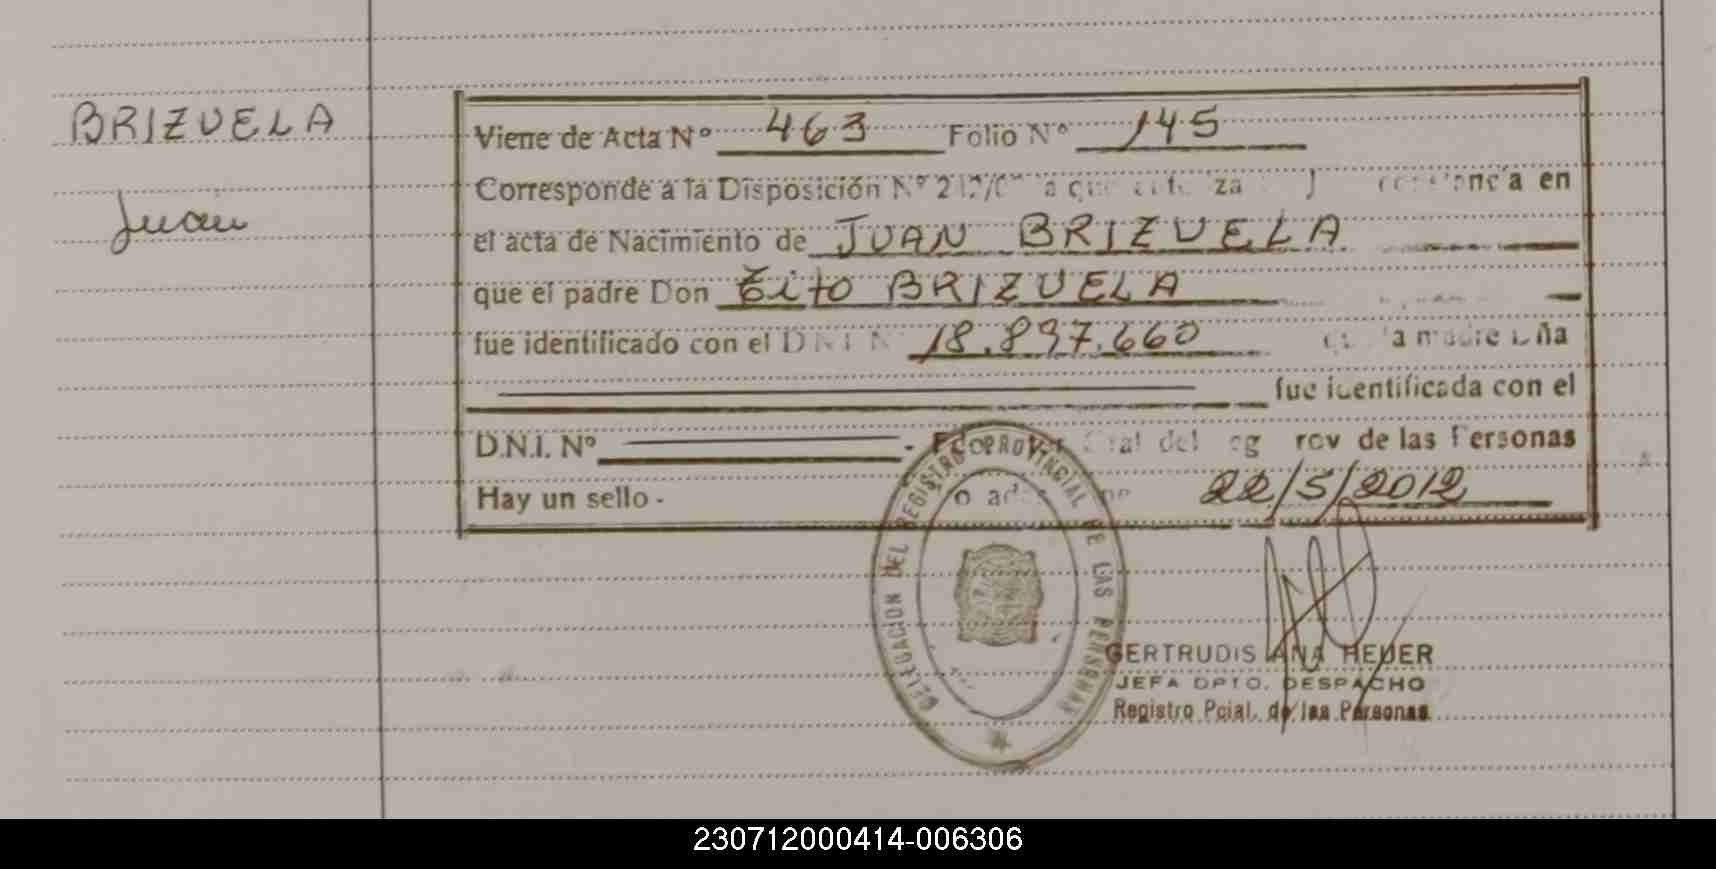 BRIZUELA
Juan
Viene de Acta Nº 463 Folio Nº 145
Corresponde a la Disposición Nº en
el acta de Nacimiento de JUAN BRIZUELA
que el padre Don Tito BRIZUELA
fue identificado con el D.N.I. Nº 18.897.660 la madre Dña
fue identificada con el
D.N.I. Nº - del de las Personas
Hay un sello - 22/5/2012
DELEGACION DEL REGISTRO PROVINCIAL DE LAS PERSONAS
GERTRUDIS ANA HEUER
JEFA DPTO. DESPACHO
Registro Pcial. de las Personas
230712000414-006306